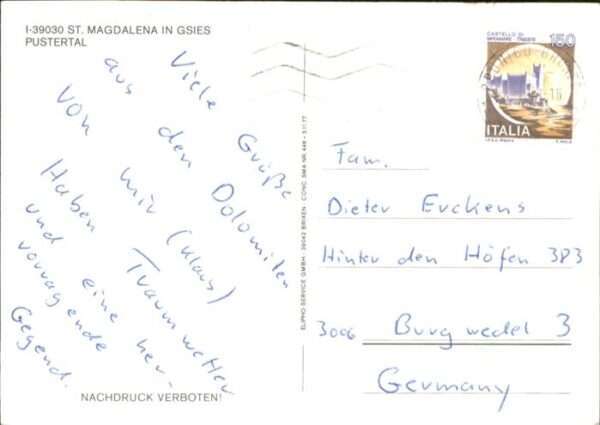 I-39030 ST. MAGDALENA IN GSIES
PUSTERTAL
Viele Grüße
aus den Dolomiten
von mir (Klaus)
Haben Traumwetter
und eine her-
vorragende
Gegend.
NACHDRUCK VERBOTEN!
ELIPHO SERVICE GMBH · 39042 BRIXEN
CASTELLO DI
MIRAMARE · TRIESTE
150
ITALIA
Fam.
Dieter Erckens
Hinter den Höfen 383
3006 Burgwedel 3
Germany